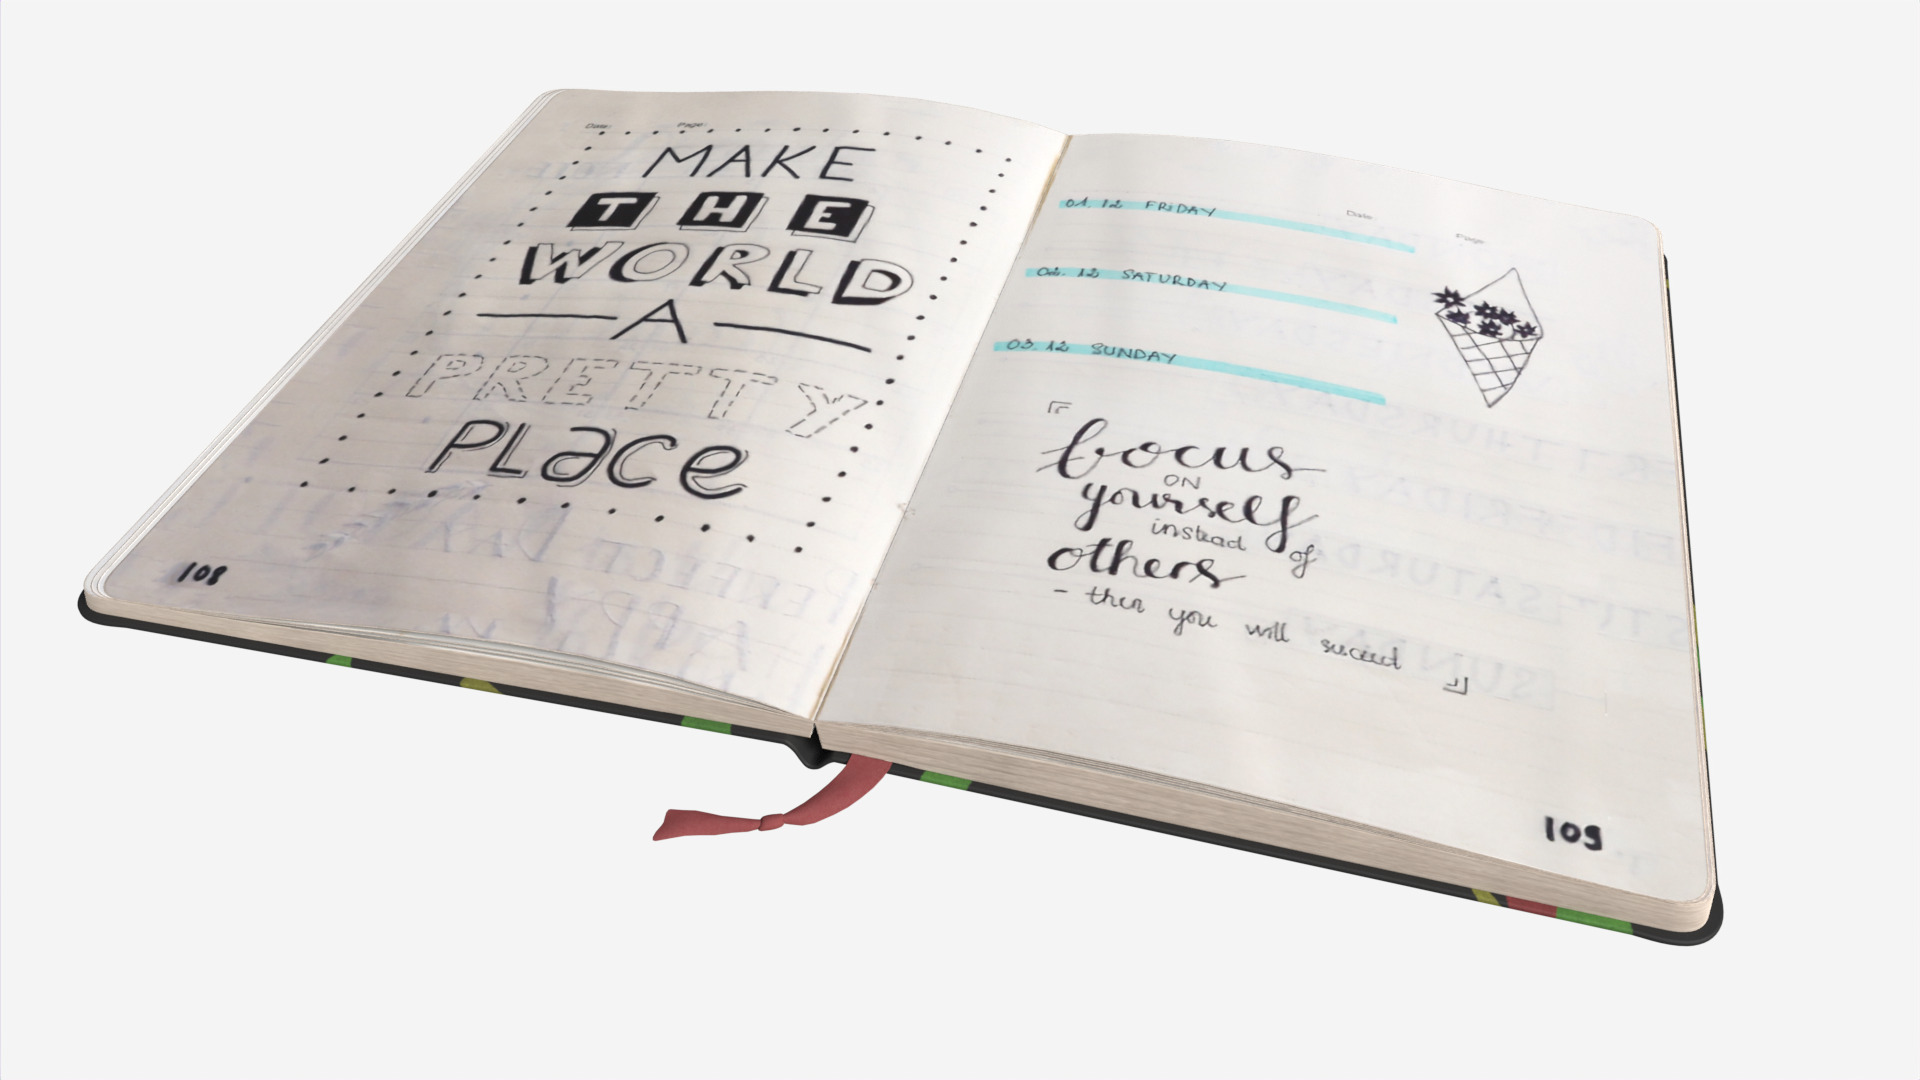 Date: Page:
MAKE
THE
WORLD
A
PRETTY
PLace
108
Date:
Page:
01. 12 FRIDAY
02. 12 SATURDAY
03. 12 SUNDAY
focus
ON
yourself
instead of
others
- then you will succeed
109